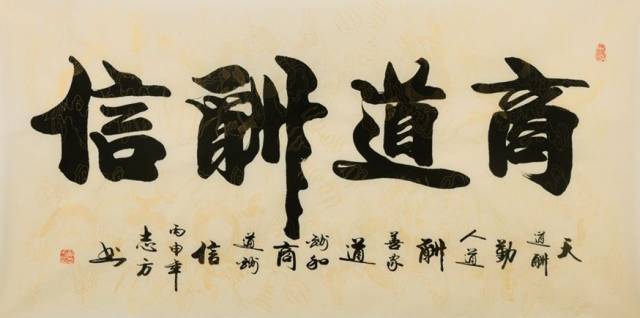 商道酬信
天道酬勤人道酬善家道酬和商道酬信
丙申年
志方书